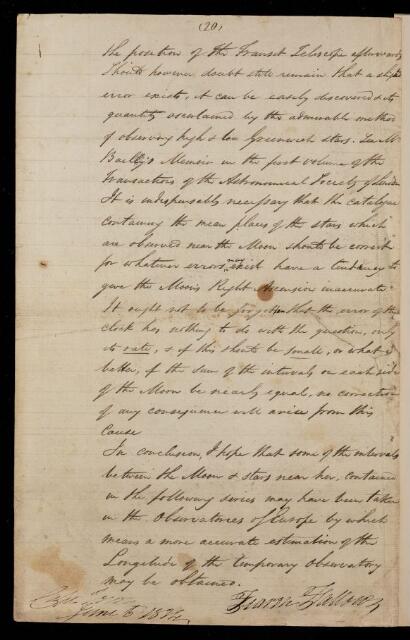 (20)
the position of the Transit Telescope afterwards
Should however doubt still remain that a slight
error exists, it can be easily discovered & its
quantity ascertained by the admirable method
of observing high & low Greenwich stars. See Mr
Baily's Memoir in the first volume of the
Transactions of the Astronomical Society of London
It is indispensably necessary that the catalogue
containing the mean places of the stars which
are observed near the Moon should be correct
for whatever errors may exist have a tendency to
give the Moon's Right Ascension inaccurate
It ought not to be forgotten that the error of the
clock has nothing to do with the question, only
its rate, & if this should be small, or what is
better, if the sum of the intervals on each side
of the Moon be nearly equal, no correction
of any consequence will arise from this
Cause
In conclusion, I hope that some of the intervals
between the Moon & stars near her, contained
in the following series may have been taken
in the Observatories of Europe by which
means a more accurate estimation of the
Longitude of the temporary Observatory
may be obtained.
Fearon Fallows
June 6 1824